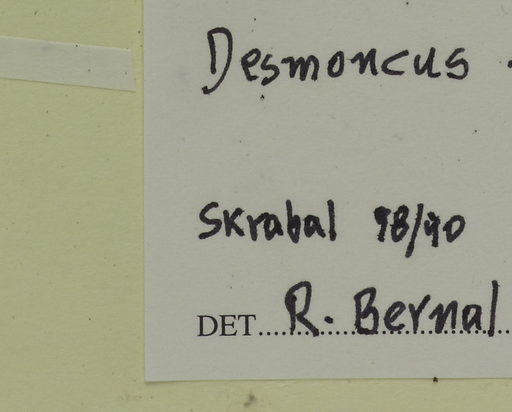 Desmoncus
Skrabal 98/40
DET. R. Bernal